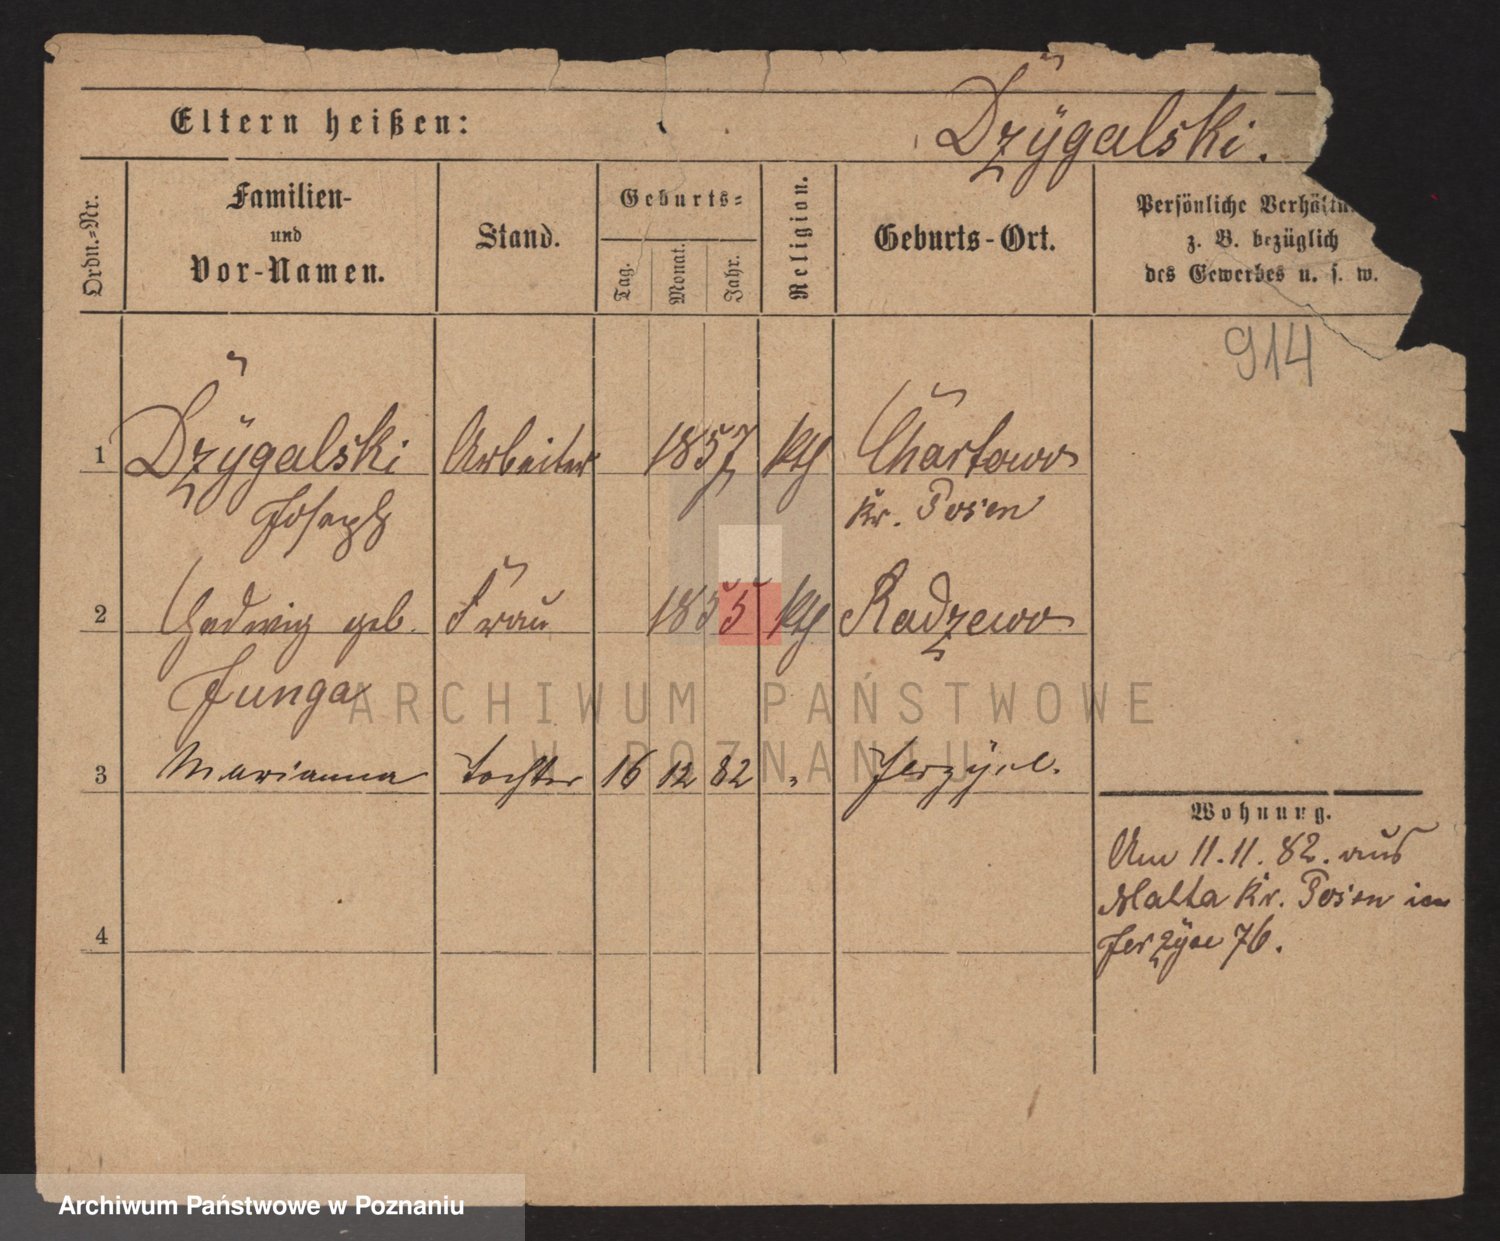 Eltern heißen:
Dzÿgalski.
Ordn.-Nr.
Familien-
und
Vor-Namen.
Stand.
Geburts-
Tag.
Monat.
Jahr.
Religion.
Geburts-Ort.
Persönliche
z. B. bezüglich
des Gewerbes u. s. w.
914
1 Dzÿgalski Arbeiter 1857 kth Chartowo
Joseph Kr. Posen
2 Hedwig geb. Frau 1855 kth Radzewo
Junga
3 Marianna Tochter 16 12 82 " Jerzÿce.
Wohnung.
Am 11.11.82. aus
Malta Kr. Posen in
Jerzÿce 76.
4
ARCHIWUM PAŃSTWOWE
W POZNANIU
Archiwum Państwowe w Poznaniu